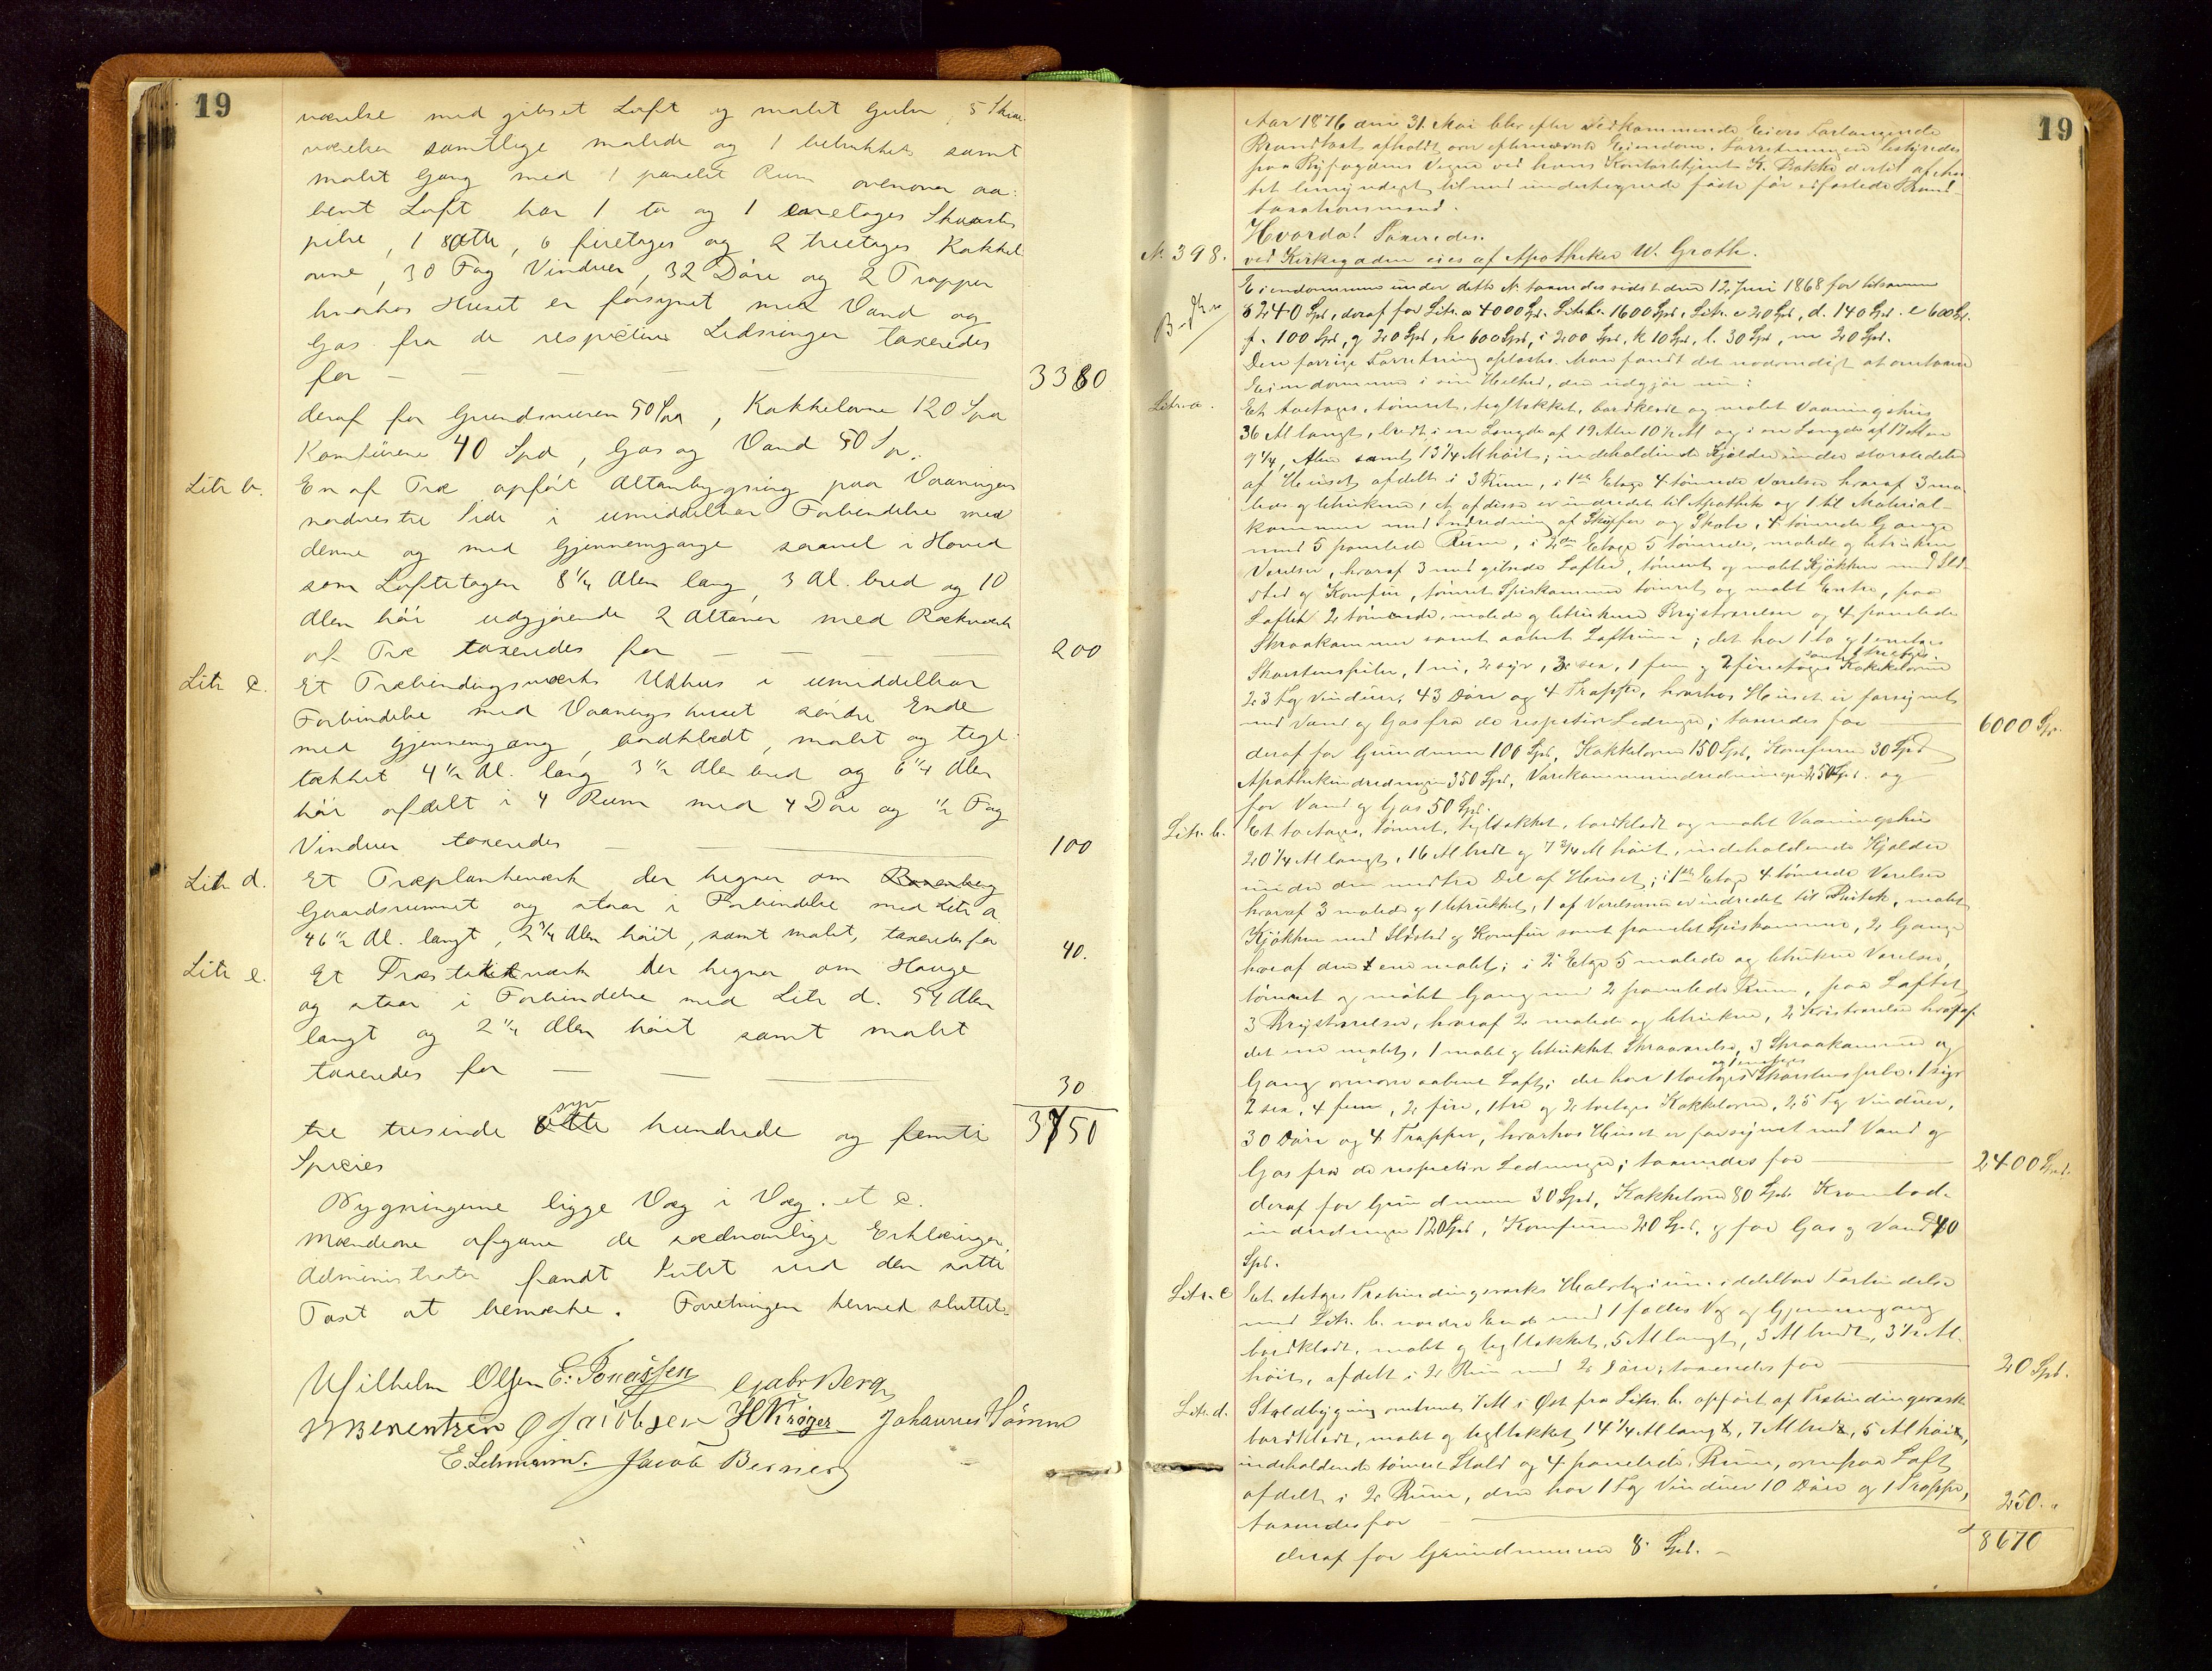 19
værelse med gibset Loft og malet Gulv, 5 Skraa
værelser samtlige malede og 1 betrukket samt
malet Gang med 1 panelet Rum ovenover aa-
bent Loft har 1 to og 1 eenetages Skorsteens
piber, 1 8 otte, 6 firetages og 2 treetages Kakkel
ovne, 30 Fag Vinduer, 32 Döre og 2 Trapper
hvorhos Huset er forsynet med Vand og
Gas fra de respective Ledninger taxeredes
for — — — — — 3380
deraf for Grundmuren 50 Spd, Kakkelovne 120 Spd
Komfürene 40 Spd, Gas og Vand 50 Sp.
Litr b. En af Træ opført Altanbygning paa Vaaningens
nordvestre Side i umiddelbar Forbindelse med
denne og med Gjennemgange saavel i Hoved
som Loftetagen 8 1/4 Alen lang, 3 Al. bred og 10
Alen høi udgjørende 2 Altaner med Rækværk
af Træ taxeredes for — — — 200
Litr c. Et Træbindingsværks Udhus i umiddelbar
Forbindelse med Vaaningshuset søndre Ende
med Gjennemgang, bordklædt, malet og tegl
tækket 4 1/2 Al. lang 3 1/2 Alen bred og 6 1/4 Alen
høi afdelt i 4 Rum med 4 Döre og 1/2 Fag
Vinduer taxeredes — — 100
Litr d. Et Træplankeværk der hegner om
Gaardsrummet og staar i Forbindelse med Litr a
46 1/2 Al. langt, 2 3/4 Alen höit, samt malet, taxeredes for 40.
Litr e. Et Træstakitværk der hegner om Hauge
og staar i Forbindelse med Litr d. 54 Alen
langt og 2 1/4 Alen höit samt malet
taxeredes for — — — 30
tre tusinde syv hundrede og femti 3750
Species
Bygningerne ligge Væg i Væg. et c.
Mændene afgave de sædvanlige Erklæringer,
Administrator fandt Intet ved den satte
Taxt at bemærke. Forretningen hermed sluttet.
Wilhelm Olsen E. Jonassen Gabr Berg
M Berentzen O Jacobsen H Krøger Johannes Sömme
E. Lehmann. Jacob Berner
19
Aar 1876 den 31. Mai blev efter Vedkommende Eiers Forlangende
Brandtaxt afholdt over efternævnte Eiendom. Forretningen bestyredes
paa Byfogdens Vegne ved hans Kontorbetjent K. Bakke dertil
bemyndiget, tilmed undertegnede faste før edfæstede Brand-
taxationsmænd.
Hvorda! Taxeredes.
N. 398. ved Kirkegaden eies af Apotheker W. Groth.
Eiendommen under dette N. taxeredes sidst den 12 Juni 1868 for tilsammen
8240 Spd, deraf for Litr. a 4000 Spd. Litr. b. 1600 Spd, Litr. c 20 Spd, d. 140 Spd. e 600 Spd.
f. 100 Spd, g 20 Spd, h 600 Spd, i 200 Spd, k 10 Spd, l. 30 Spd, m 20 Spd.
Den forrige Forretning oplæstes. Man fandt det nødvendigt at omtaxere
Eiendommen i sin Helhed, den udgjør nu:
Litr. a. Et toetages, tømret, tegltækket, bordklædt og malet Vaaningshus
36 Al langt, bredt i en Længde af 19 Alen 10 1/2 Al og i en Længde af 17 Alen
9 1/4 Alen samt 13 1/4 Al høit; indeholdende Kjelder under størstedelen
af Huset afdelt i 3 Rum, i 1ste Etage 4 tømrede Værelser hvoraf 3 ma-
lede og betrukne, et af disse er indredet til Apothek og 1 til Material-
kammer med Indredning af Skuffer og Skabe, 4 tømrede Gange
med 5 panelede Rum, i 2den Etage 5 tømrede, malede og betrukne
Værelser, hvoraf 3 med gibsede Lofter, tømret og malet Kjøkken med Ild-
sted og Komfur, tømret Spiskammer tømret og malet Entre, paa
Loftet 2 tømrede, malede og betrukne Brystværelser og 4 panelede
Skraakammer samt aabent Loftrum; det har 1 to og 1 enetages
Skorstenspiber, 1 ni, 2 syv, 3 sex, 1 fem og 2 firetages samt 1 treetages Kakkelovne
23 Fag Vinduer, 43 Døre og 4 Trapper, hvorhos Huset er forsynet
med Vand og Gas fra de respective Ledninger; taxeredes for — 6000 Sp.
deraf for Grundmuren 100 Spd, Kakkelovne 150 Spd, Komfuren 30 Spd
Apothekindredningen 350 Spd, Varekammerindredningen 250 Spd. og
for Vand og Gas 50 Spd.
Litr. b. Et toetages, tømret, tegltækket, bordklædt og malet Vaaningshus
20 1/4 Al langt, 16 Al bredt og 7 3/4 Al høit, indeholdende Kjelder
under den nedre Del af Huset; i 1ste Etage 4 tømrede Værelser
hvoraf 3 malede og 1 betrukket, 1 af Værelserne er indredet til Butik, malet
Kjøkken med Ildsted og Komfur samt panelet Spiskammer, 2 Gange
hvoraf den ene malet; i 2. Etage 5 malede og betrukne Værelser,
tømret og malet Gang med 2 panelede Rum, paa Loftet
3 Brystværelser, hvoraf 2 malede og betrukne, 2 Kvistværelser hvoraf
det ene malet, 1 malet og betrukket Skraaværelse, 3 Skraakammer og
Gang ovenover aabent Loft; der har 1 toetages og 1 enetages Skorstenspibe. 1 syv
2 sex, 4 fem, 2 fire, 1 tre og 2 toetages Kakkelovne, 25 Fag Vinduer,
30 Døre og 4 Trapper, hvorhos Huset er forsynet med Vand og
Gas fra de respective Ledninger; taxeredes for — 2400 Spd.
deraf for Grundmuren 30 Spd, Kakkelovne 80 Spd. Krambod-
indredningen 120 Spd, Komfuren 20 Spd. og for Gas og Vand 40
Spd.
Litr. c Et etetages Træbindingsværks Halvtag i umiddelbar Forbindelse
med Litr. b. nordre Ende med 1 fælles Væg og Gjennemgang
bordklædt, malet og tegltækket, 5 Al langt, 3 Al bredt, 3 1/2 Al.
høit, afdelt i 2 Rum med 2 Døre; taxeredes for — 20 Spd.
Litr. d. Staldbygning omtrent 7 Al i Øst fra Litr. b. opført af Træbindingsværk
bordklædt, malet og tegltækket 14 1/4 Al lang, 7 Al bred, 5 Al høi,
indeholdende tømret Stald og 4 panelede Rum, ovenpaa Loft
afdelt i 2 Rum, den har 1 Fag Vinduer 10 Døre og 1 Trappe,
taxeredes for — 250. "
deraf for Grundmuren 8 Spd. — 8670